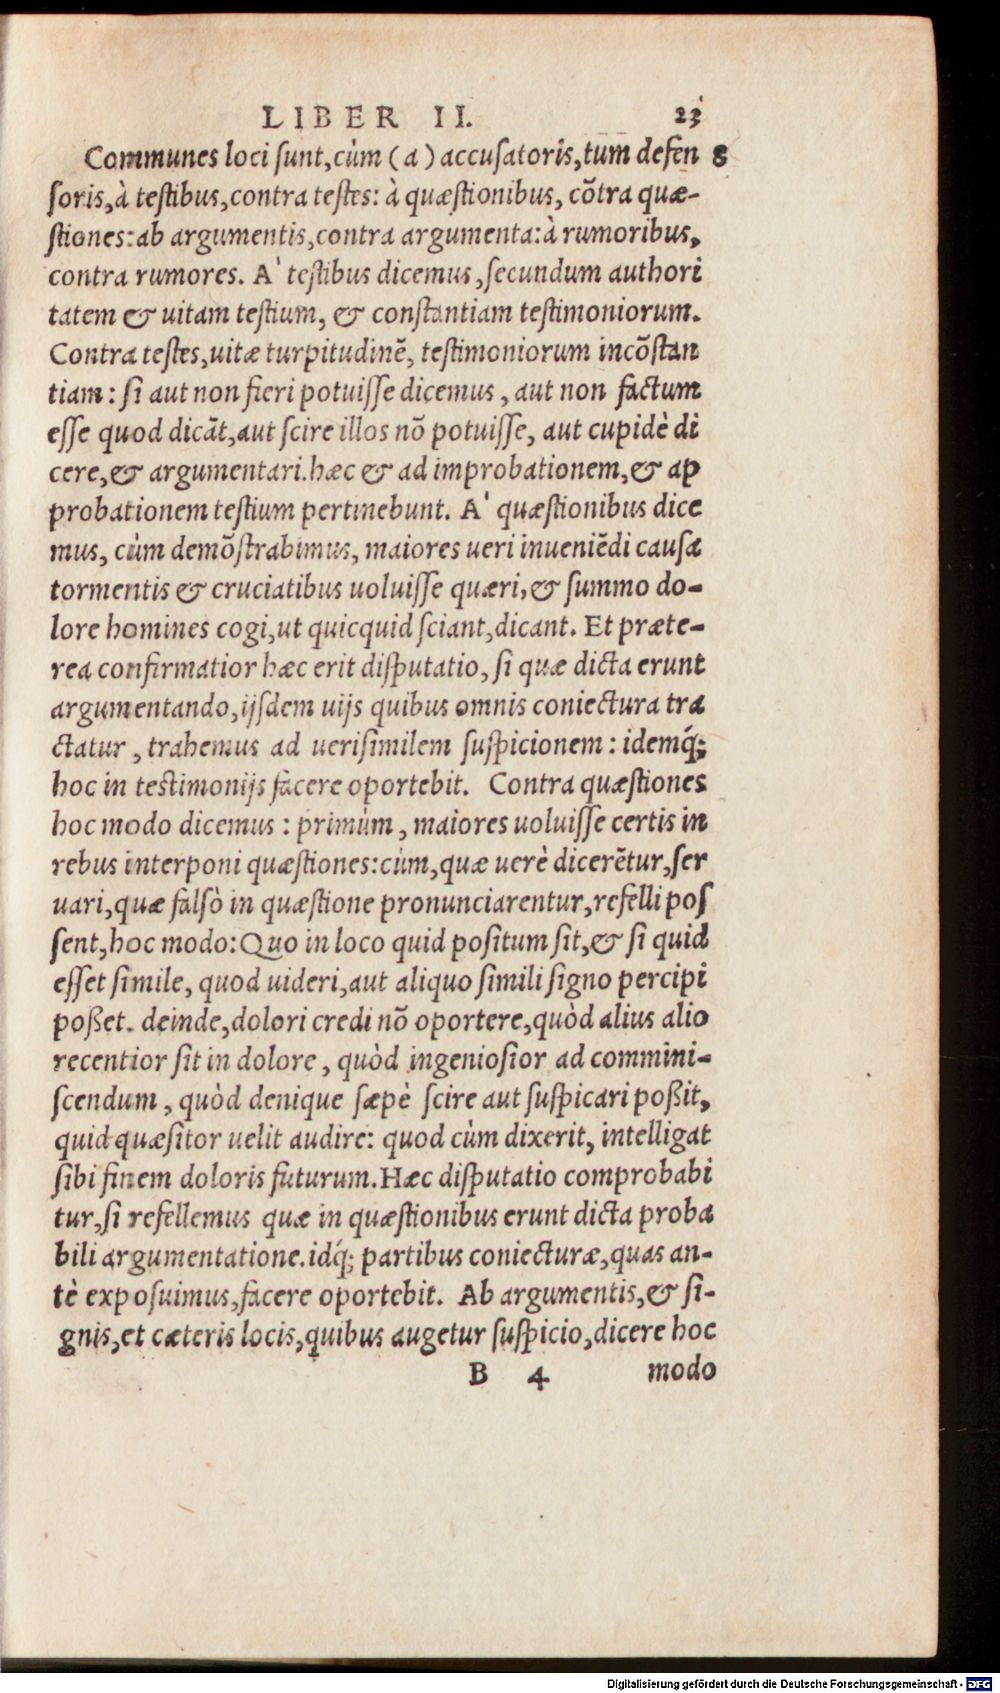 LIBER II. 23
Communes loci sunt, cùm (a) accusatoris, tum defen 8
soris, à testibus, contra testes: à quæstionibus, cōtra quæ-
stiones: ab argumentis, contra argumenta: à rumoribus,
contra rumores. A' testibus dicemus, secundum authori
tatem & uitam testium, & constantiam testimoniorum.
Contra testes, uitæ turpitudinē, testimoniorum incōstan
tiam: si aut non fieri potuisse dicemus, aut non factum
esse quod dicāt, aut scire illos nō potuisse, aut cupidè di
cere, & argumentari. hæc & ad improbationem, & ap
probationem testium pertinebunt. A' quæstionibus dice
mus, cùm demōstrabimus, maiores ueri inueniēdi causa
tormentis & cruciatibus uoluisse quæri, & summo do-
lore homines cogi, ut quicquid sciant, dicant. Et præte-
rea confirmatior hæc erit disputatio, si quæ dicta erunt
argumentando, ijsdem uijs quibus omnis coniectura tra
ctatur, trahemus ad uerisimilem suspicionem: idemq́;
hoc in testimonijs facere oportebit. Contra quæstiones
hoc modo dicemus: primùm, maiores uoluisse certis in
rebus interponi quæstiones: cùm, quæ uerè dicerētur, ser
uari, quæ falsò in quæstione pronunciarentur, refelli pos
sent, hoc modo: Quo in loco quid positum sit, & si quid
esset simile, quod uideri, aut aliquo simili signo percipi
poßet. deinde, dolori credi nō oportere, quòd alius alio
recentior sit in dolore, quòd ingeniosior ad commini-
scendum, quòd denique sæpè scire aut suspicari poßit,
quid quæsitor uelit audire: quod cùm dixerit, intelligat
sibi finem doloris futurum. Hæc disputatio comprobabi
tur, si refellemus quæ in quæstionibus erunt dicta proba
bili argumentatione. idq́; partibus coniecturæ, quas an-
tè exposuimus, facere oportebit. Ab argumentis, & si-
gnis, et cæteris locis, quibus augetur suspicio, dicere hoc
B 4 modo
Digitalisierung gefördert durch die Deutsche Forschungsgemeinschaft - DFG